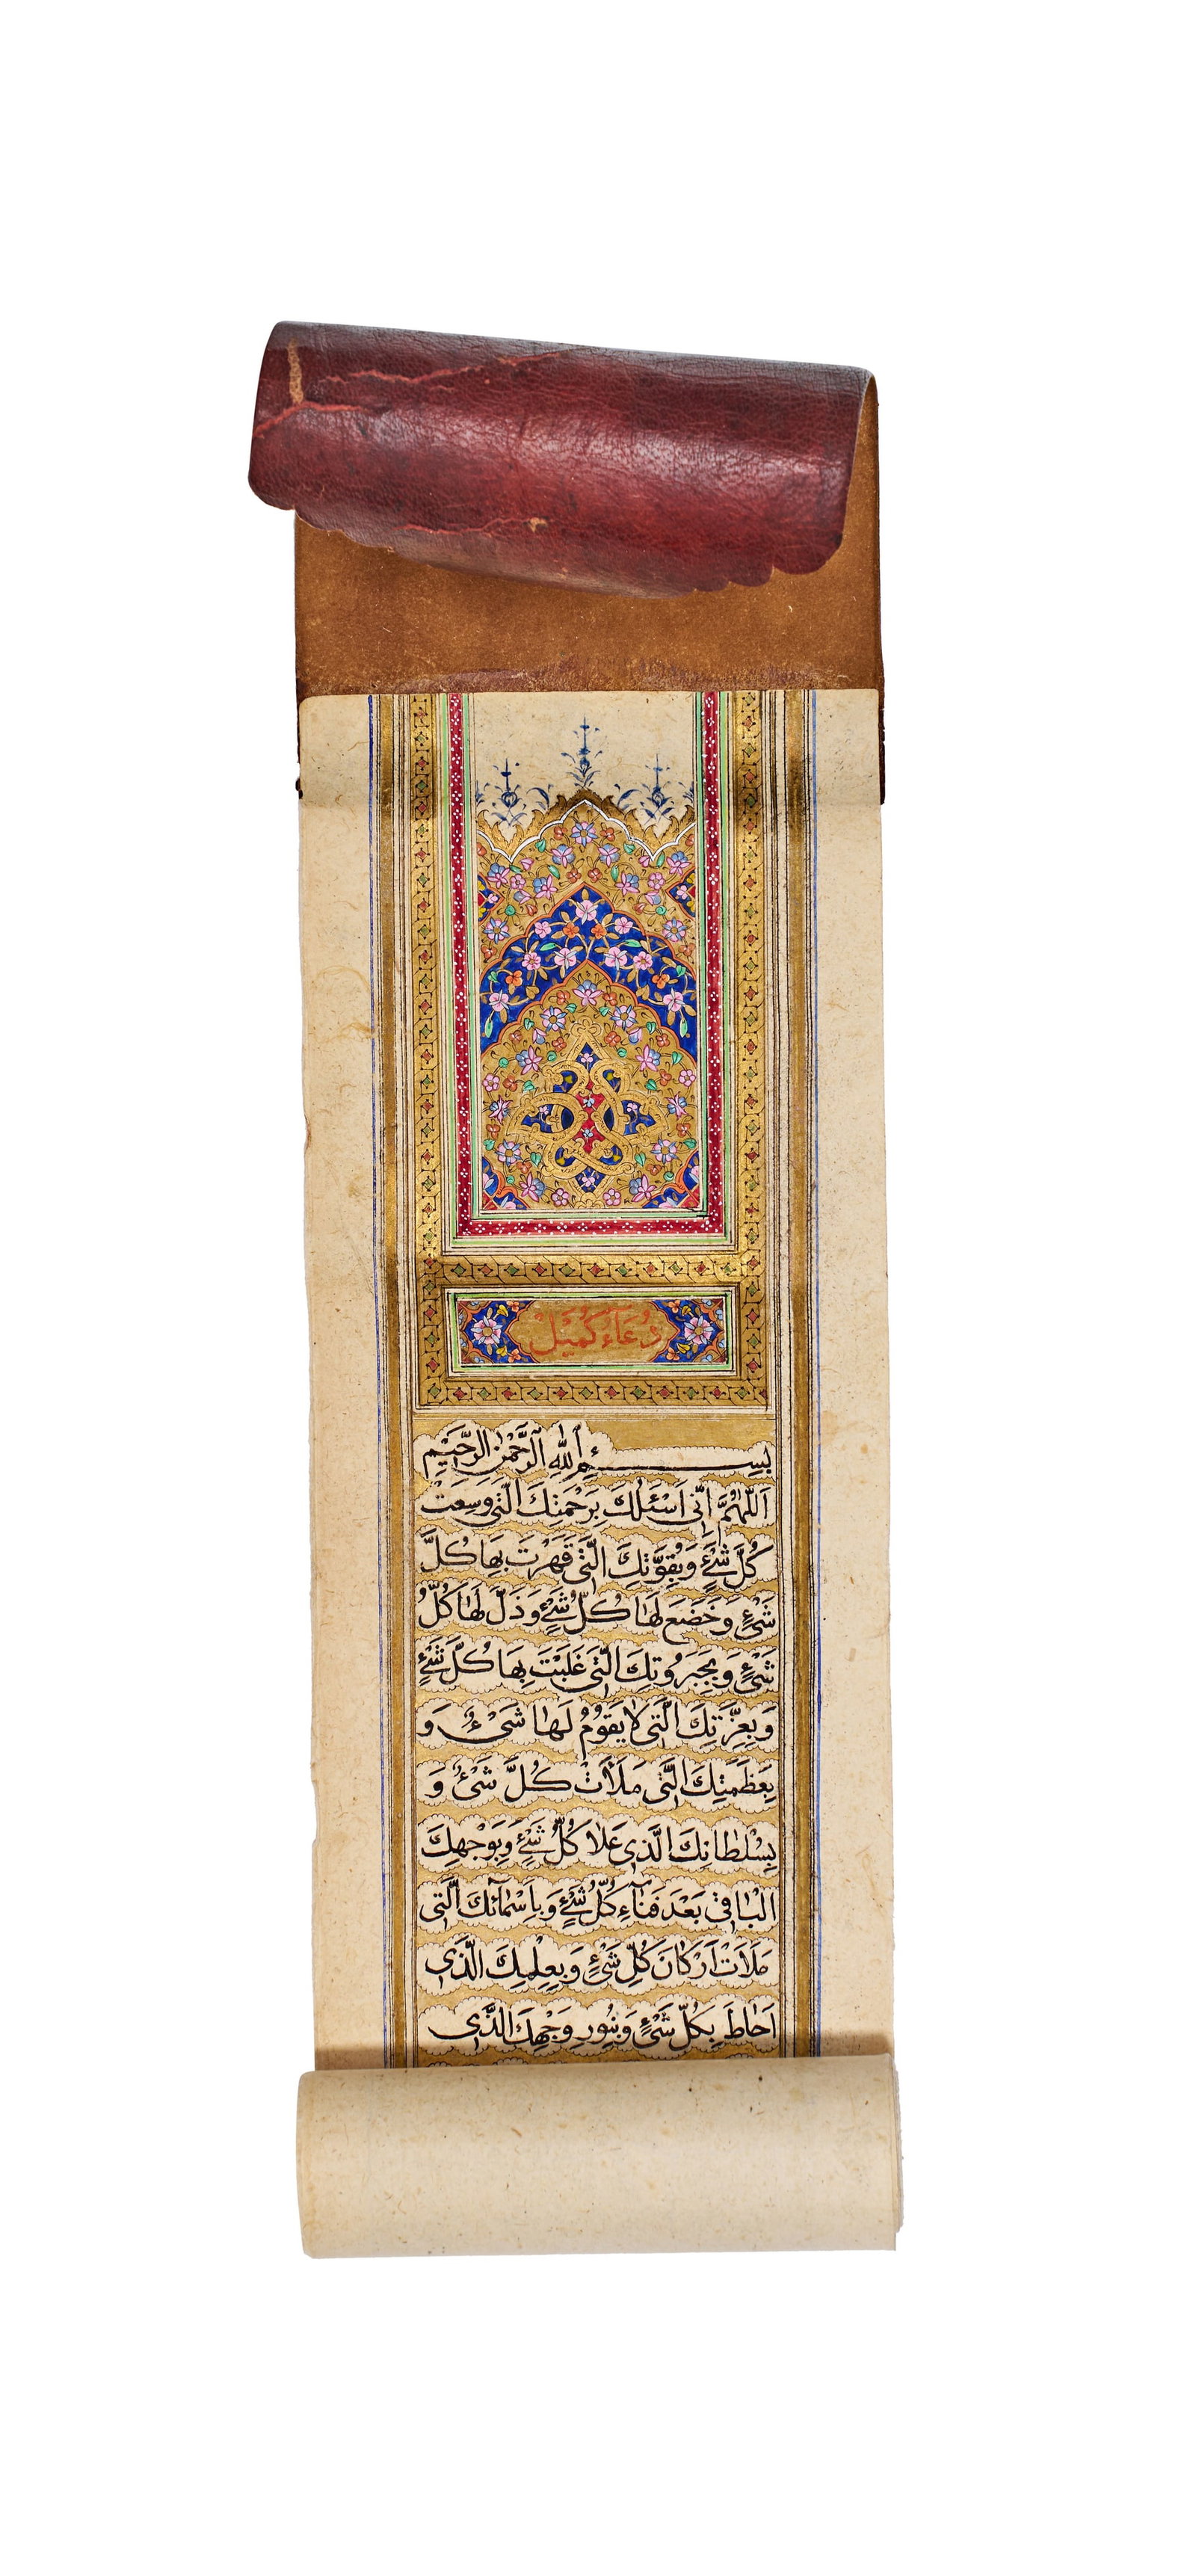 دُعَآءِ كُمَيْل
بِسْمِ اللّٰهِ الرَّحْمٰنِ الرَّحِيْمِ
اَللّٰهُمَّ اِنِّى اَسْئَلُكَ بِرَحْمَتِكَ الَّتِى وَسِعَتْ
كُلَّ شَىْءٍ وَبِقُوَّتِكَ الَّتِى قَهَرْتَ بِهَا كُلَّ
شَىْءٍ وَخَضَعَ لَهَا كُلُّ شَىْءٍ وَ ذَلَّ لَهَا كُلُّ
شَىْءٍ وَبِجَبَرُوتِكَ الَّتِى غَلَبْتَ بِهَا كُلَّ شَىْءٍ
وَبِعِزَّتِكَ الَّتِى لَا يَقُومُ لَهَا شَىْءٌ وَ
بِعَظَمَتِكَ الَّتِى مَلَأَتْ كُلَّ شَىْءٍ وَ
بِسُلْطَانِكَ الَّذِى عَلَا كُلَّ شَىْءٍ وَبِوَجْهِكَ
الْبَاقِى بَعْدَ فَنَآءِ كُلِّ شَىْءٍ وَبِاَسْمَآئِكَ الَّتِى
مَلَاَتْ اَرْكَانَ كُلِّ شَىْءٍ وَبِعِلْمِكَ الَّذِى
اَحَاطَ بِكُلِّ شَىْءٍ وَبِنُورِ وَجْهِكَ الَّذِى